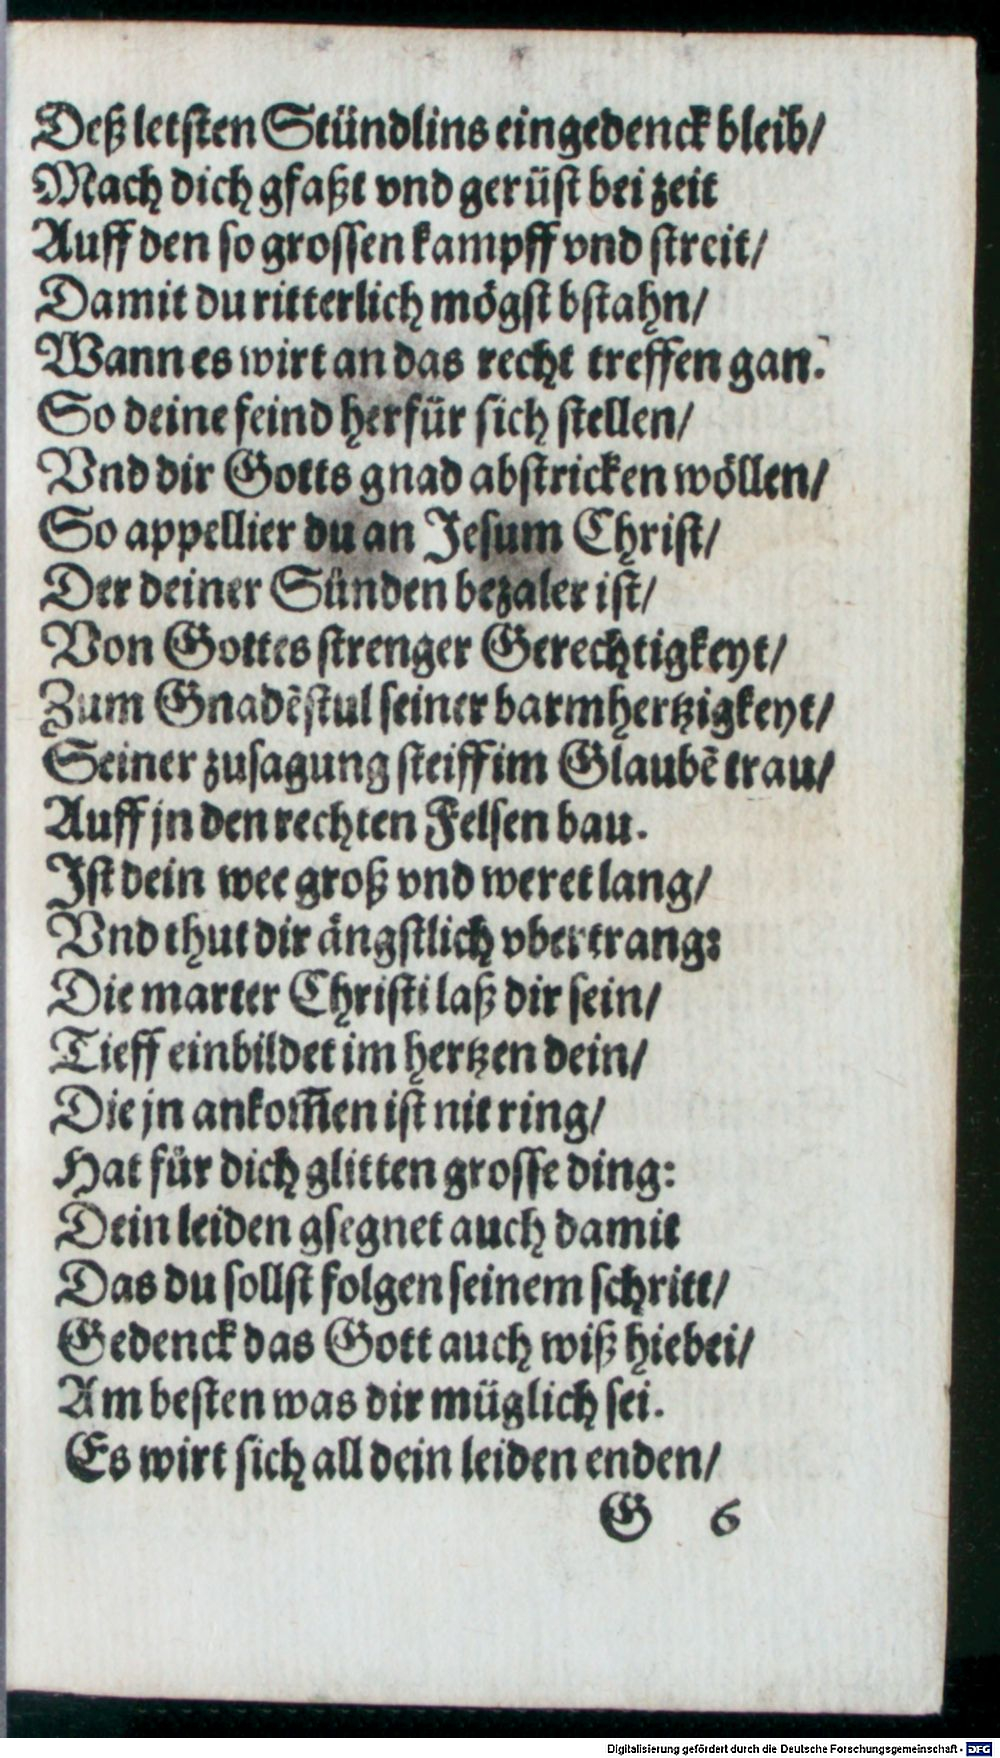 Deß letsten Stündlins eingedenck bleib/
Mach dich gfaßt vnd gerüst bei zeit
Auff den so grossen kampff vnd streit/
Damit du ritterlich mögst bstahn/
Wann es wirt an das recht treffen gan.
So deine feind herfür sich stellen/
Vnd dir Gotts gnad abstricken wöllen/
So appellier du an Jesum Christ/
Der deiner Sünden bezaler ist/
Von Gottes strenger Gerechtigkeyt/
Zum Gnadẽstul seiner barmhertzigkeyt/
Seiner zusagung steiff im Glaubẽ trau/
Auff jn den rechten Felsen bau.
Ist dein wee groß vnd weret lang/
Vnd thut dir ängstlich vbertrang:
Die marter Christi laß dir sein/
Tieff einbildet im hertzen dein/
Die jn ankom̃en ist nit ring/
Hat für dich glitten grosse ding:
Dein leiden gsegnet auch damit
Das du sollst folgen seinem schritt/
Gedenck das Gott auch wiß hiebei/
Am besten was dir müglich sei.
Es wirt sich all dein leiden enden/
G 6
Digitalisierung gefördert durch die Deutsche Forschungsgemeinschaft - DFG